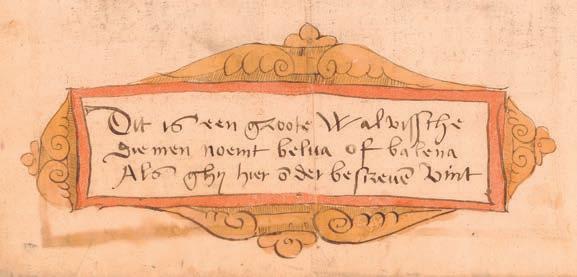 Dit is een groote Walvissche
Die men noemt belua of balena
Als ghij hier ōder bescrevē vint